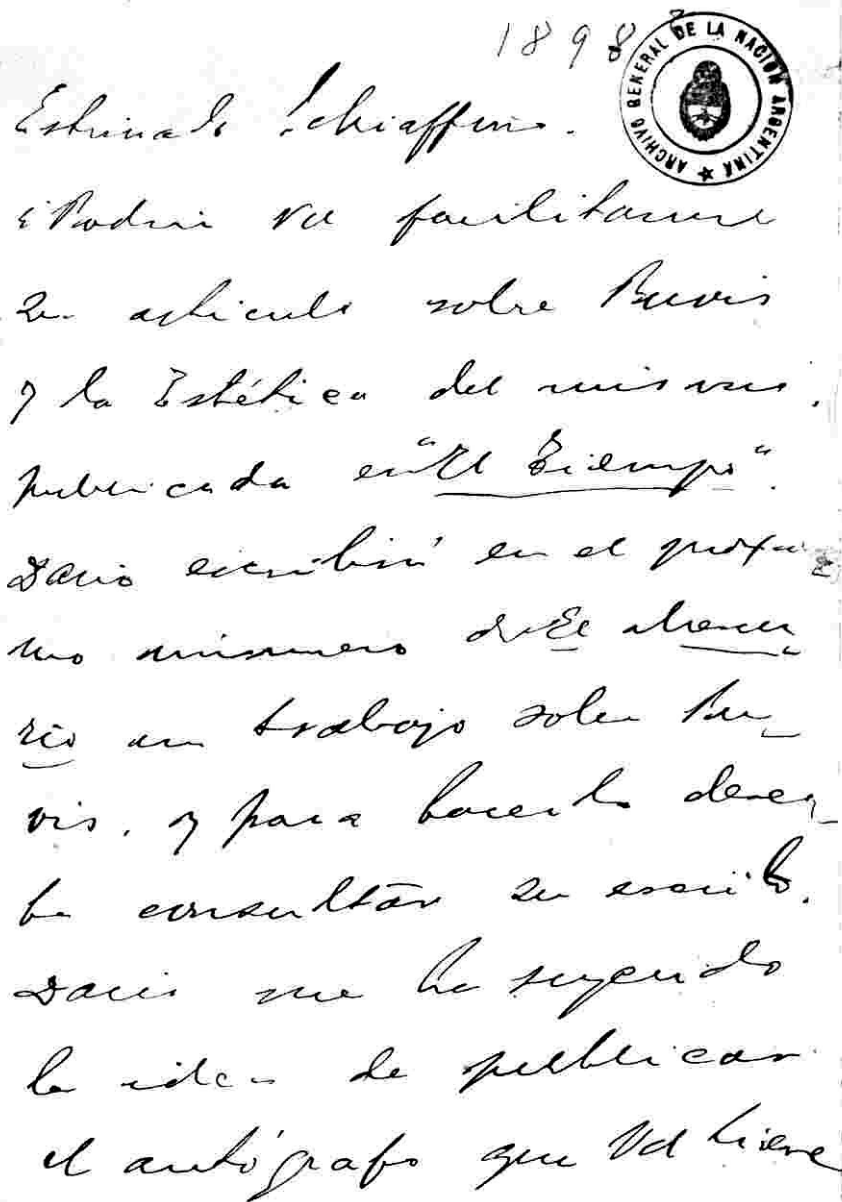 1898?
ARCHIVO GENERAL DE LA NACIÓN ARGENTINA
Estimado Schiaffino.
¿Podría Vd facilitarme
su artículo sobre Puvis
y la Estética del mismo,
publicada en "El Tiempo".
Darío escribirá en el próxi
mo número de "El Mercu
rio" un trabajo sobre Pu
vis, y para hacerlo desea
ba consultar su escrito.
Darío me ha sugerido
la idea de publicar
el autógrafo que Vd tiene